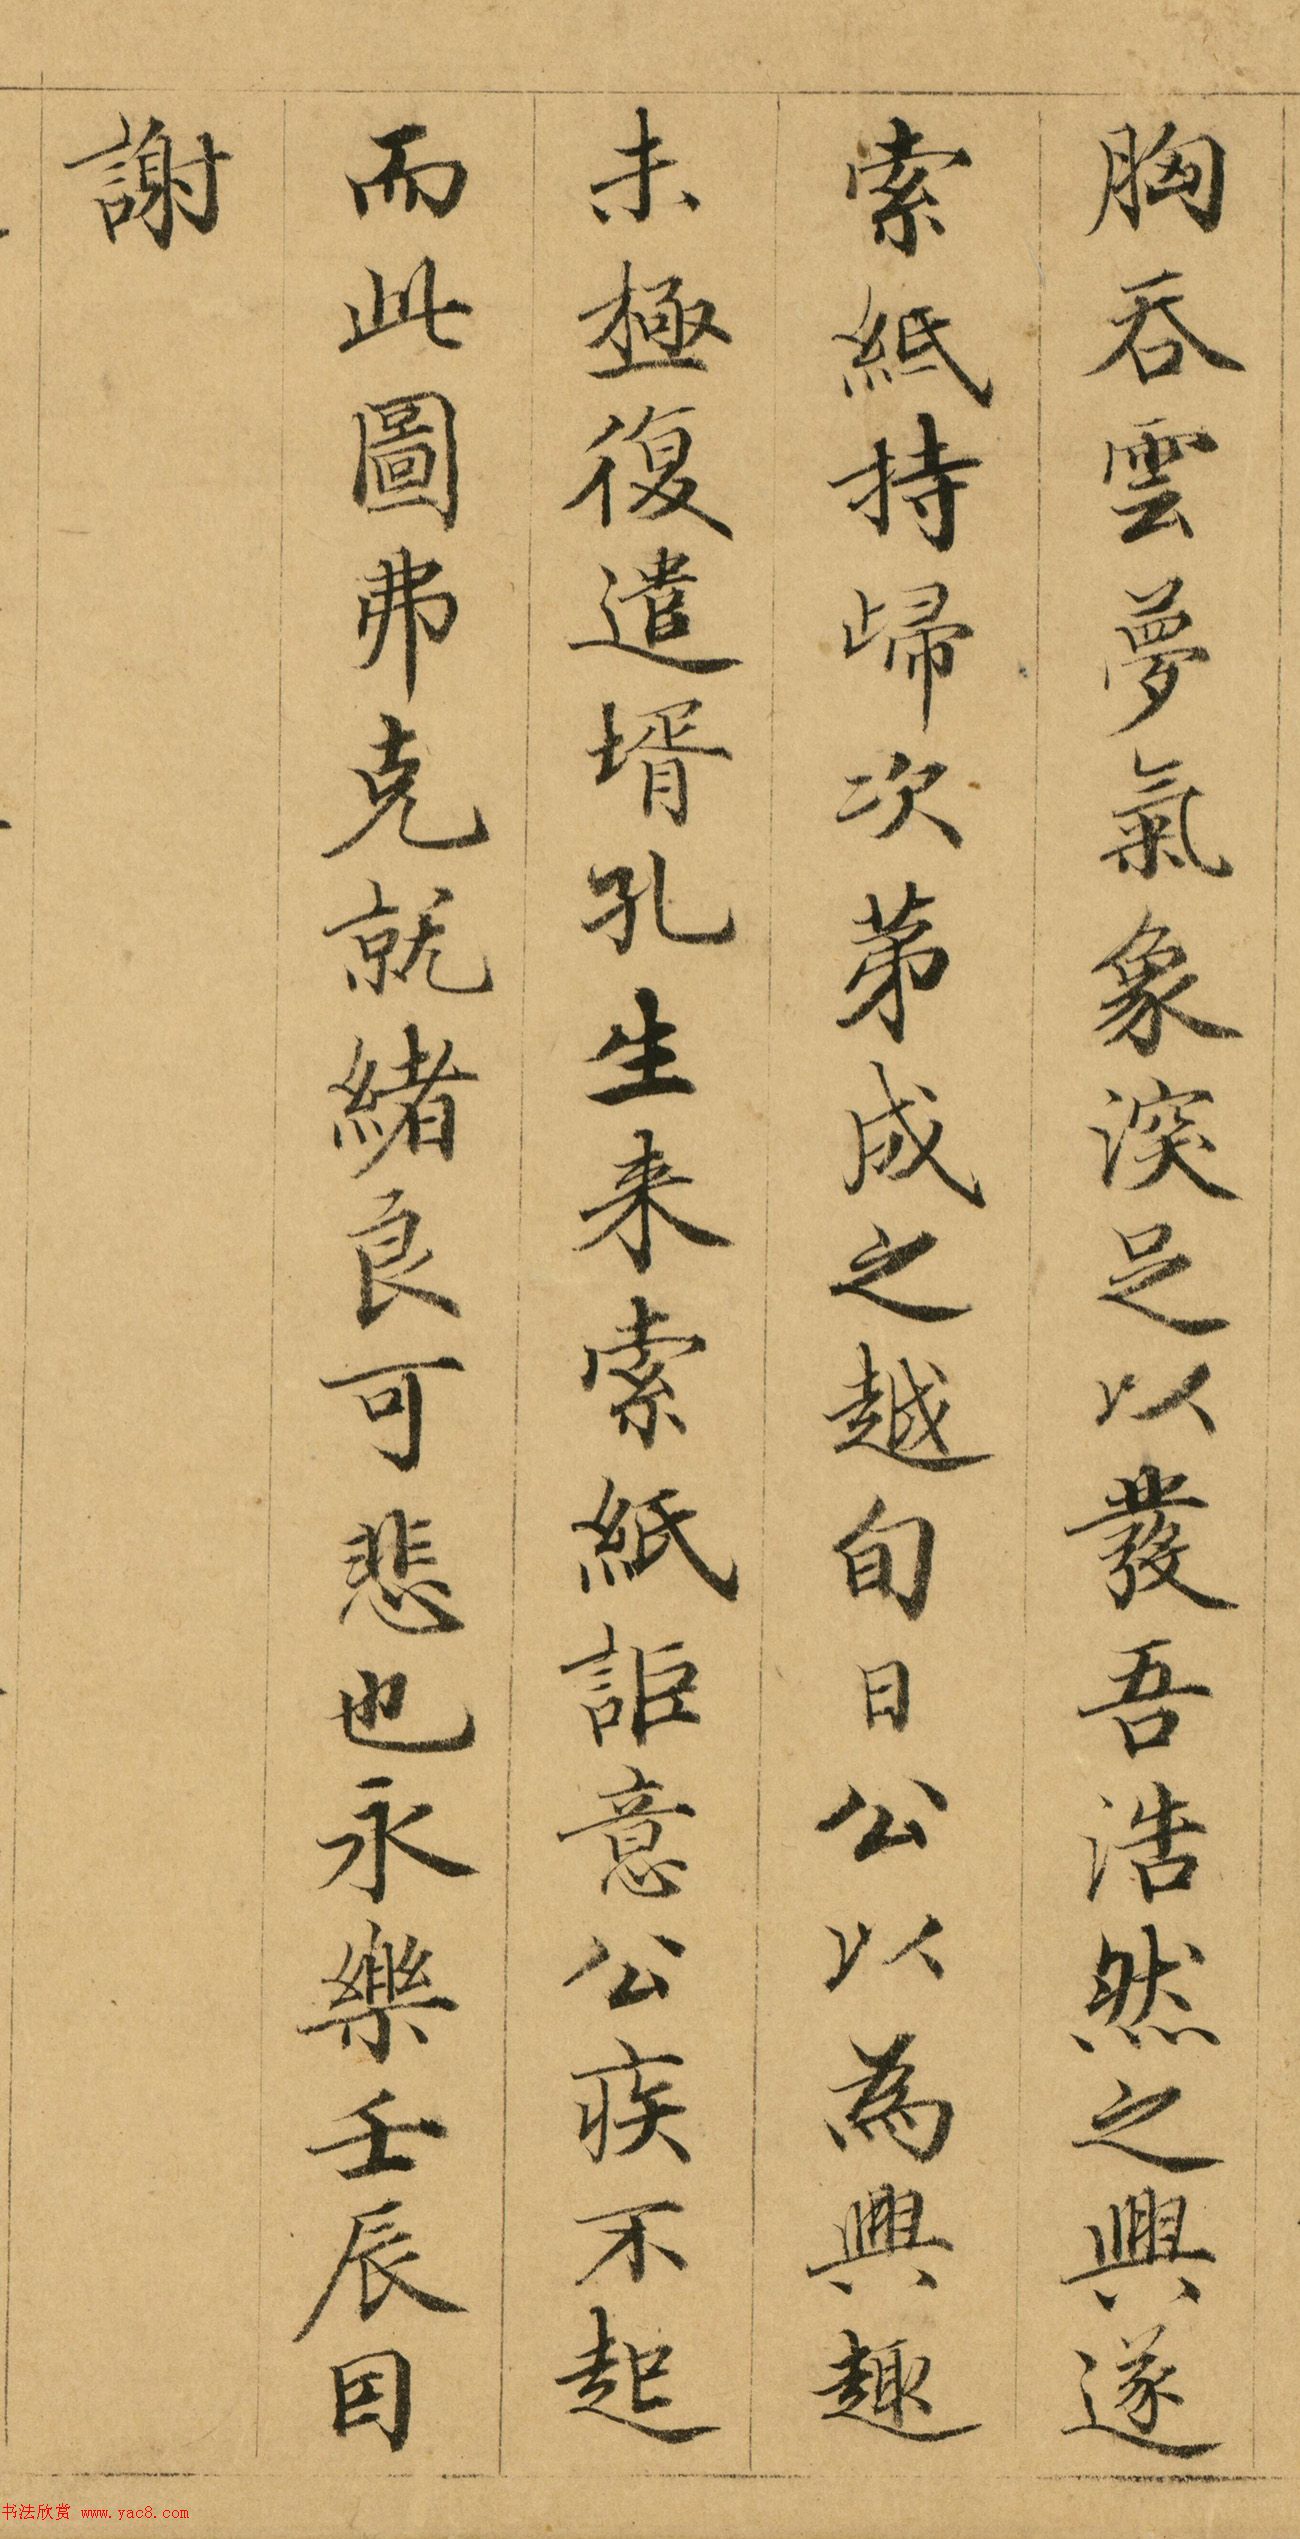 胸吞雲夢氣象深足以發吾浩然之興遂
索紙持歸次第成之越旬日公以為興趣
未極復遣壻孔生来索紙詎意公疾不起
而此圖弗克就緒良可悲也永樂壬辰因
謝
书法欣赏 www.yac8.com